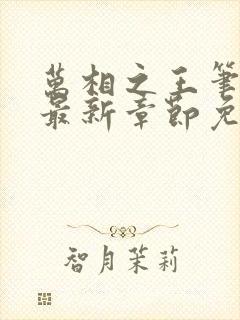 萬相之王筆
最新章節免
智月茉莉